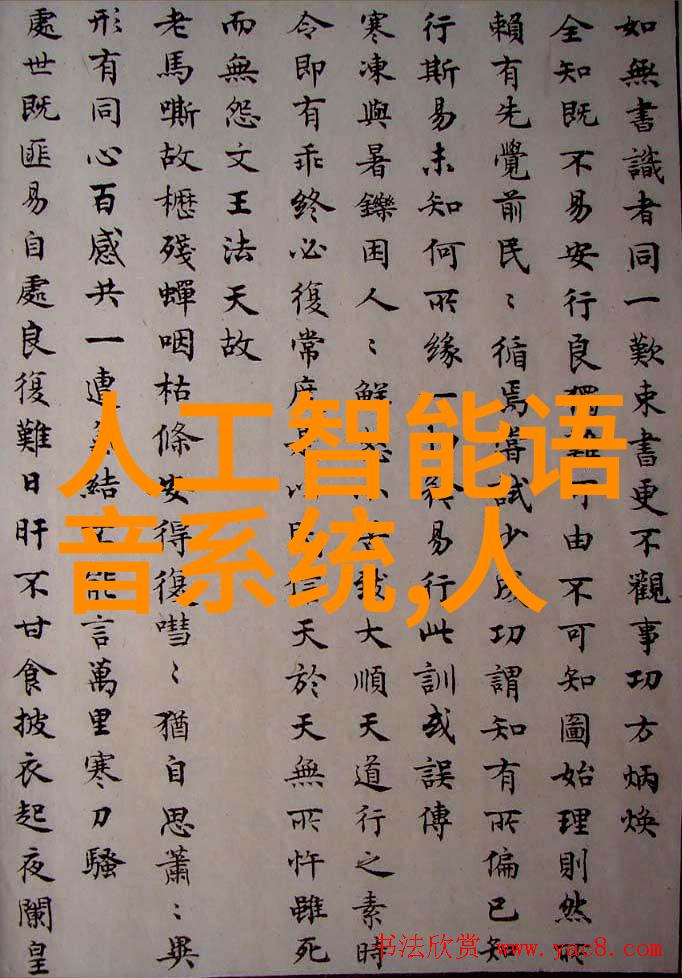 如無書識者同一歎束書更不觀事功方炳煥
全知既不易安行良獨難可由不可知圖始理則然所
賴有先覺前民〻循焉嘗試少成功謂知有所偏已知
行斯易未知何所緣行易行此訓或誤傳
寒凍與暑鑠困人〻鮮怨大順天道行之素時
令即有乖終必復常度天於天無所忤雖死
而無怨文王法天故
老馬嘶故櫪殘蟬咽枯條安得復嘒〻猶自思蕭〻異
形有同心百感共一遭結能言萬里寒刀騷
處世既匪易自處良復難日旰不甘食披衣起夜闌皇
人工智能语
音系统,人
书法欣赏 www.yac8.com